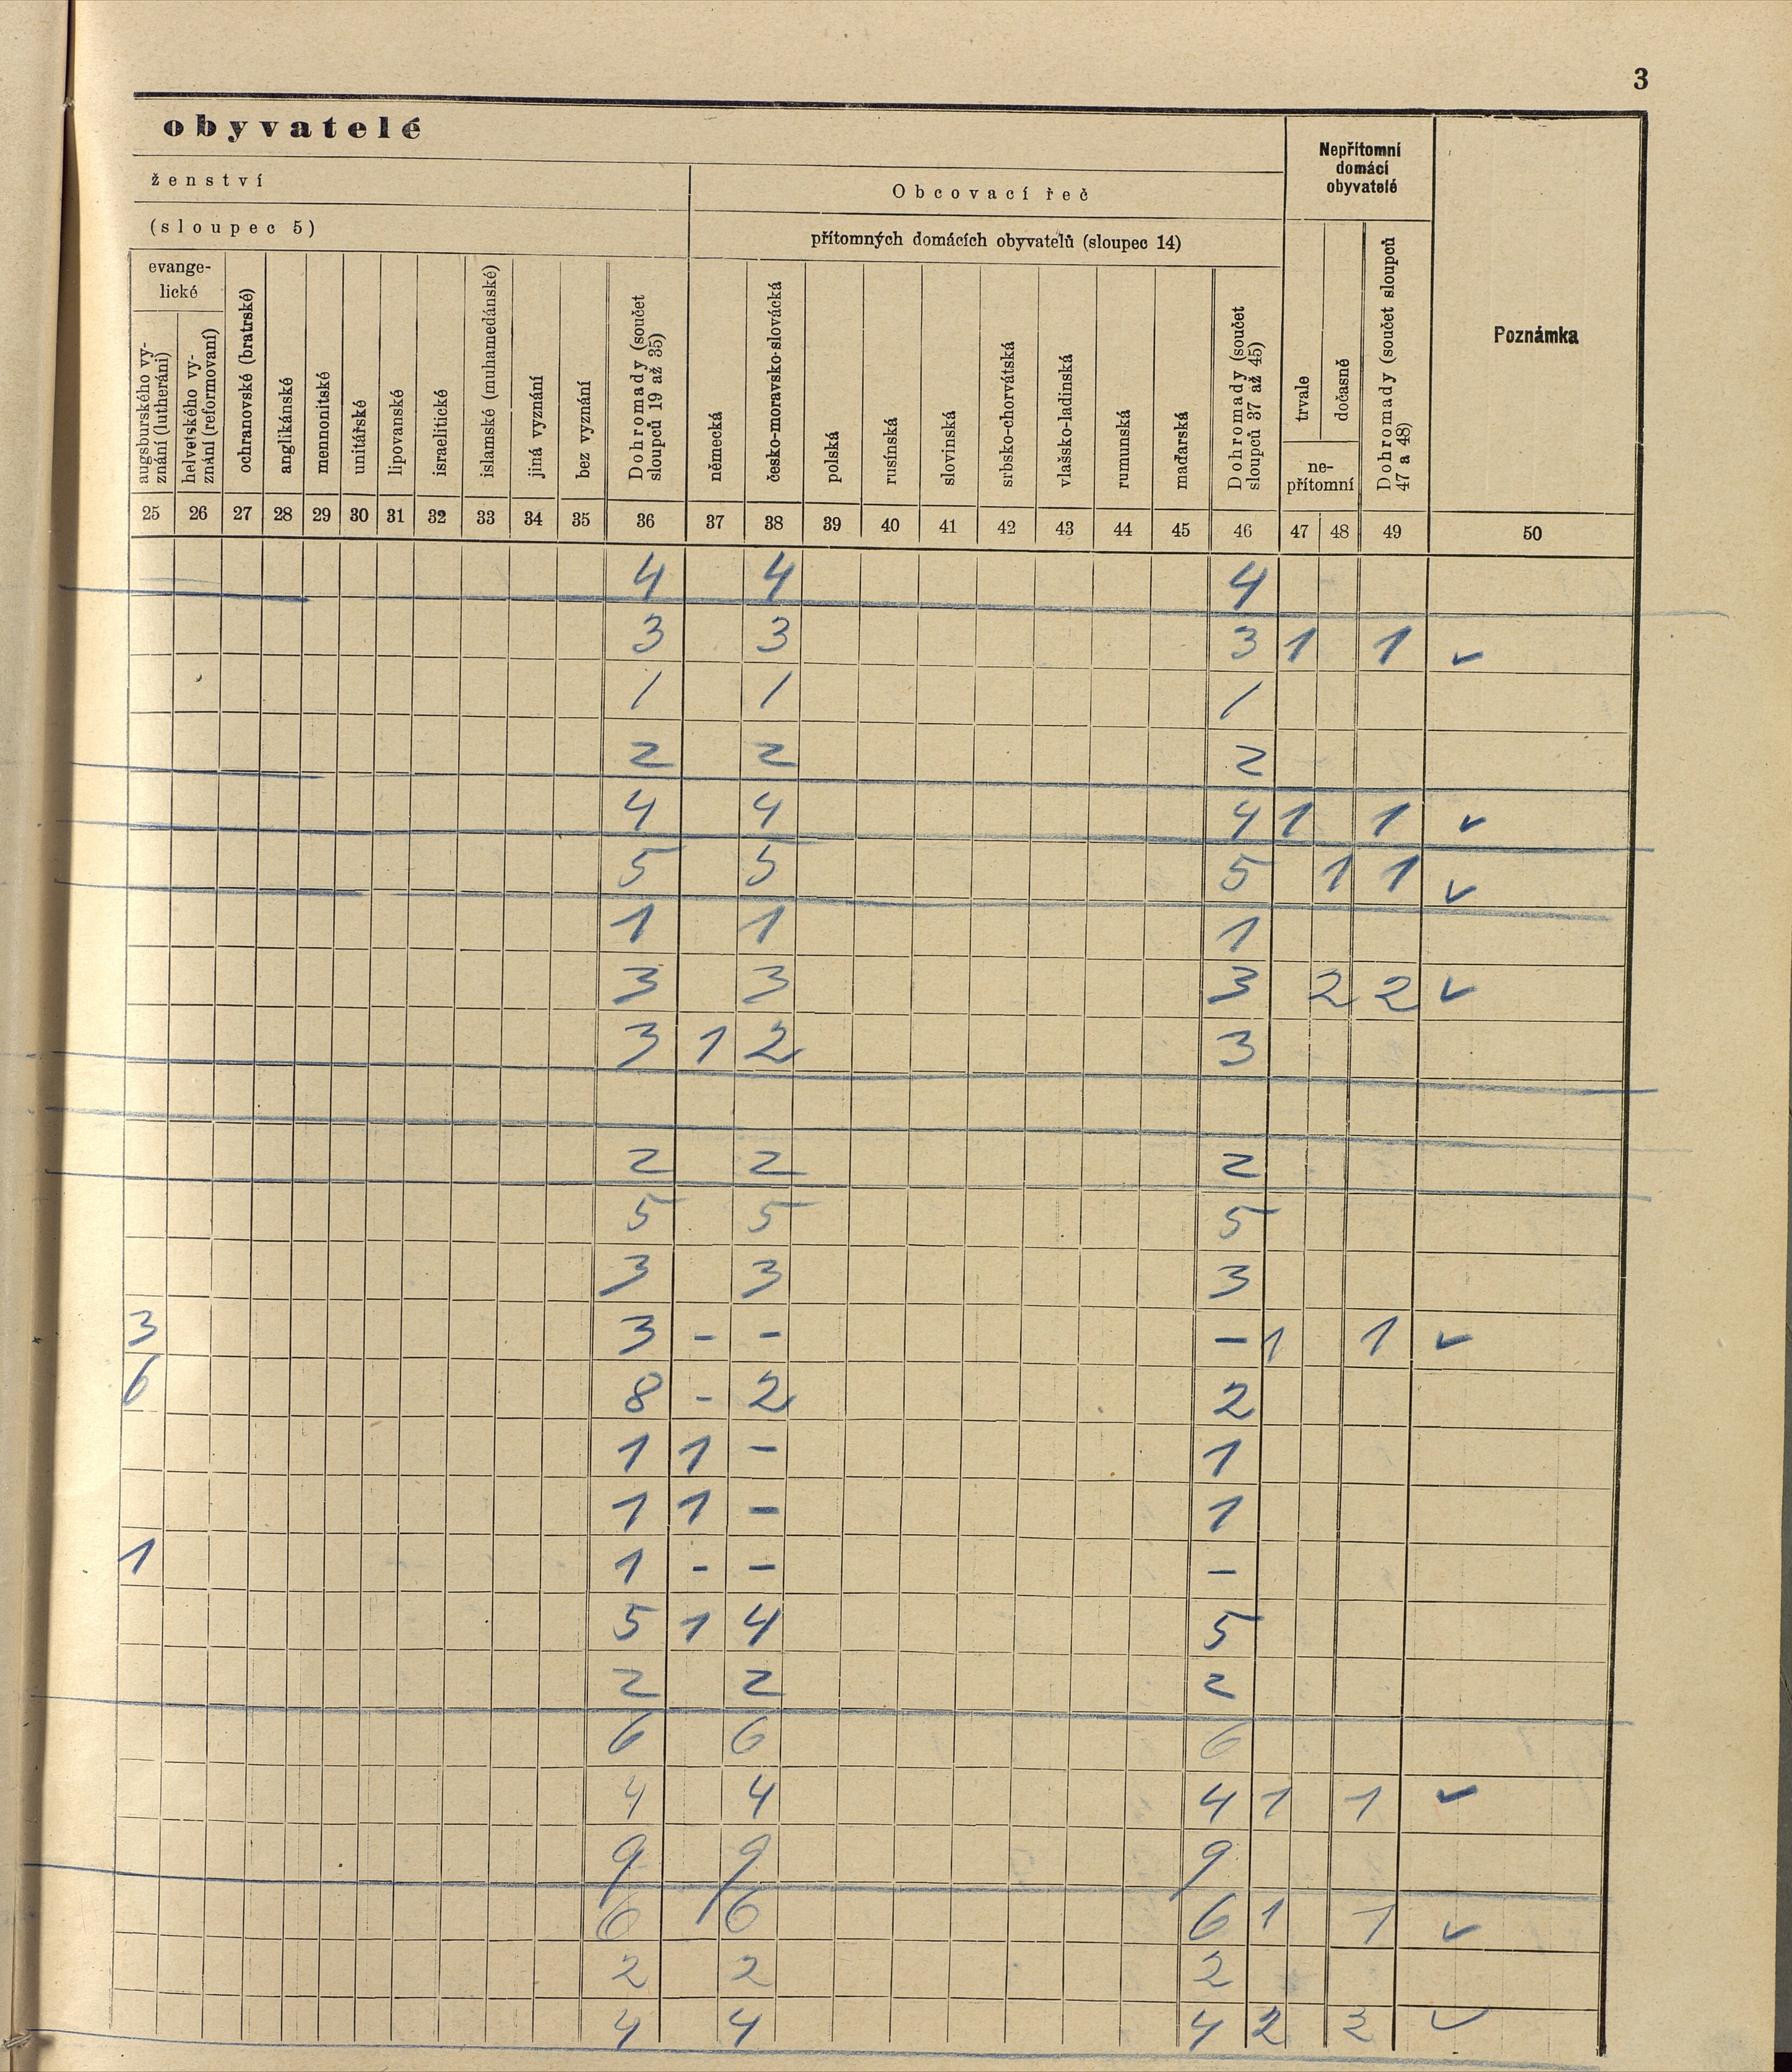 3
obyvatelé
ženství
(sloupec 5)
Obcovací řeč
přítomných domácích obyvatelů (sloupec 14)
Nepřítomní
domácí
obyvatelé
Poznámka
evange-
lické
augsburského vy-
znání (lutheráni)
helvetského vy-
znání (reformovaní)
ochranovské (bratrské)
anglikánské
mennonitské
unitářské
lipovanské
israelitické
islamské (muhamedánské)
jiná vyznání
bez vyznání
Dohromady (součet
sloupců 19 až 35)
německá
česko-moravsko-slovácká
polská
rusínská
slovinská
srbsko-chorvátská
vlašsko-ladinská
rumunská
maďarská
Dohromady (součet
sloupců 37 až 45)
trvale
dočasně
ne-
přítomní
Dohromady (součet sloupců
47 a 48)
25 26 27 28 29 30 31 32 33 34 35 36 37 38 39 40 41 42 43 44 45 46 47 48 49 50
4 4 4
3 3 3 1 1 ✓
1 1 1
2 2 2
4 4 4 1 1 ✓
5 5 5 1 1 ✓
1 1 1
3 3 3 2 2 ✓
3 1 2 3
2 2 2
5 5 5
3 3 3
3 3 - - - 1 1 ✓
6 8 - 2 2
1 1 - 1
1 1 - 1
1 1 - - -
5 1 4 5
2 2 2
6 6 6
4 4 4 1 1 ✓
9 9 9
6 6 6 1 1 ✓
2 2 2
4 4 4 2 2 ✓